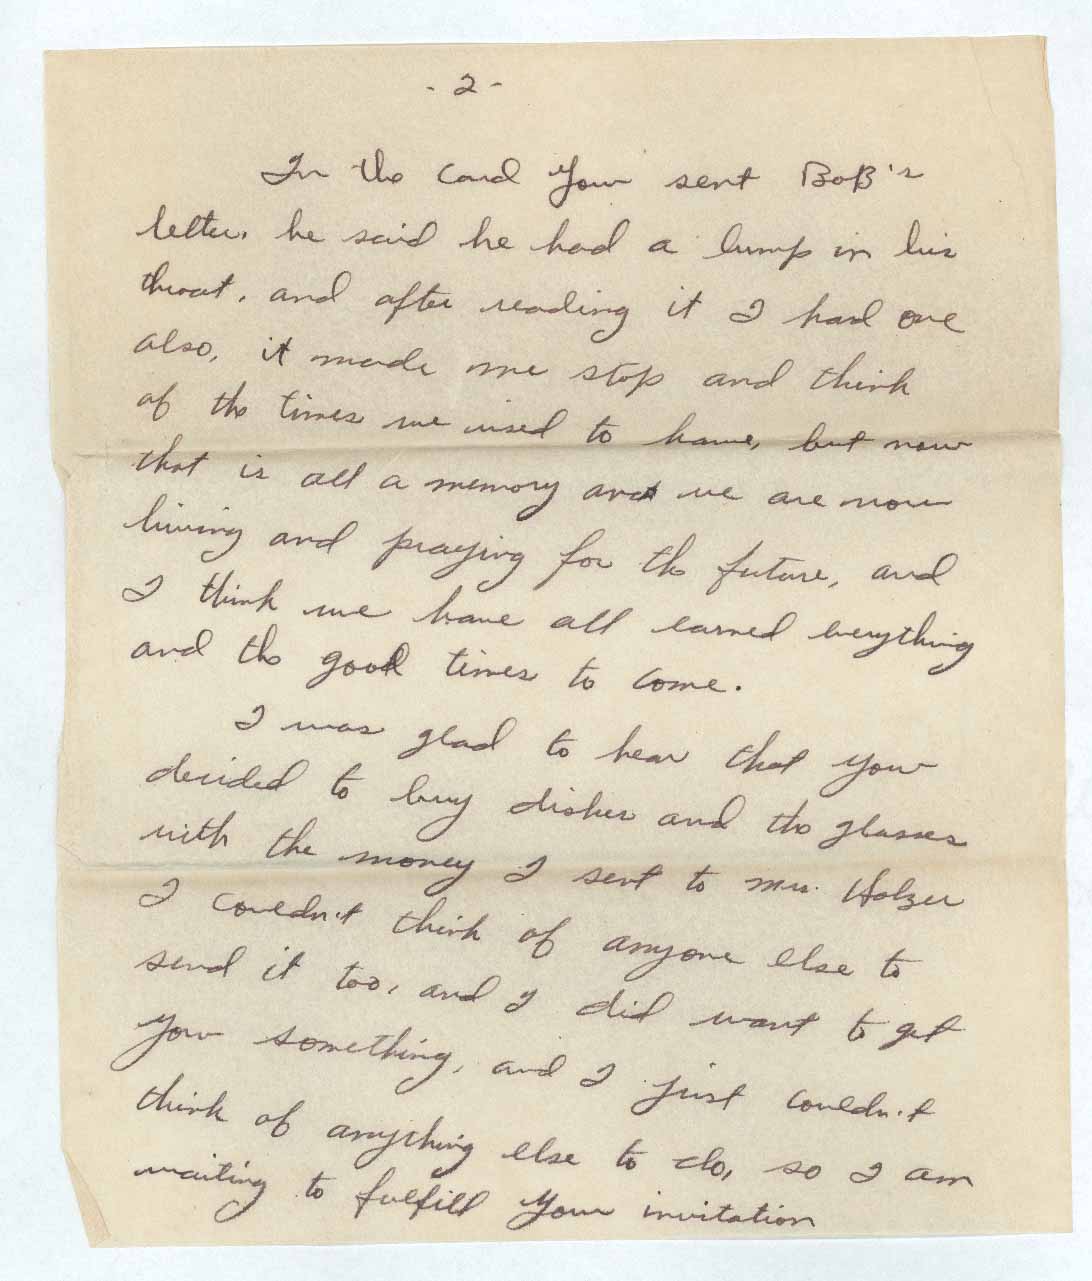 - 2 -
In the card you sent BoB's
letter, he said he had a lump in his
throat, and after reading it I had one
also, it made me stop and think
of the times we used to have, but now
that is all a memory and we are now
living and praying for the future, and
I think we have all earned everything
and the good times to come.
I was glad to hear that you
decided to buy dishes and the glasses
with the money I sent to Mrs. Holzer
I couldn't think of anyone else to
send it too, and I did want to get
you something, and I just couldn't
think of anything else to do, so I am
waiting to fulfill your invitation